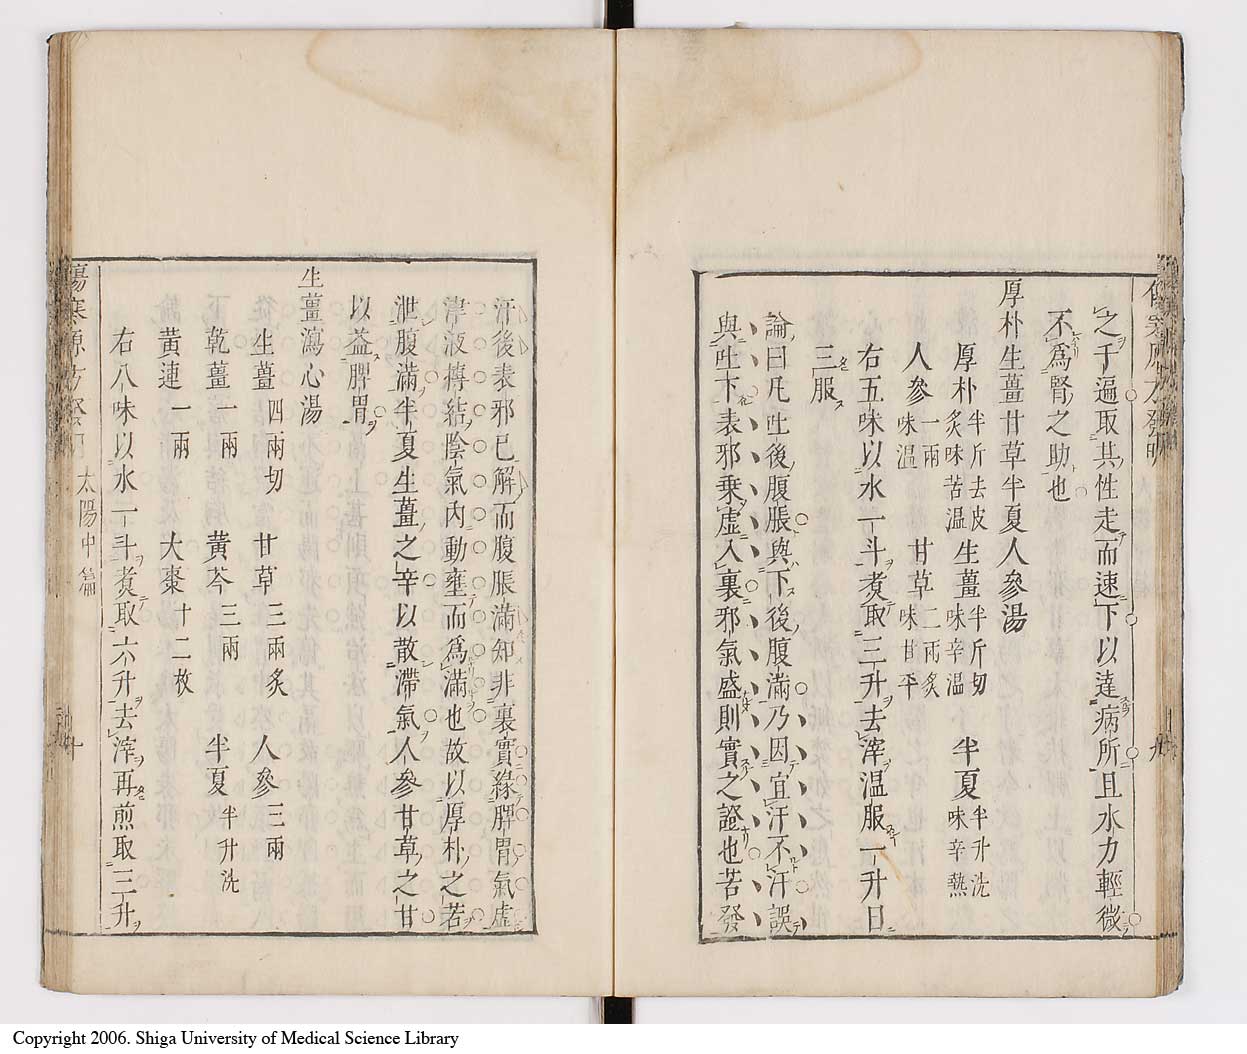 之千遍取其性走而速下以達病所且水力輕微
不爲腎之助也
厚朴生薑甘草半夏人參湯
厚朴半斤去皮炙味苦温 生薑半斤切味辛温 半夏半升洗味辛熱
人參一兩味温 甘草二兩炙味甘平
右五味以水一斗煑取三升去滓温服一升日
三服
論曰凡吐後腹脹與下後腹滿乃因宜汗不汗誤
與吐下表邪乗虚入裏邪氣盛則實之證也若發
汗後表邪已解而腹脹滿知非裏實緣脾胃氣虚
津液摶結陰氣内動壅而爲滿也故以厚朴之苦
泄腹滿半夏生薑之辛以散滯氣人參甘草之甘
以益脾胃
生薑瀉心湯
生薑四兩切 甘草三兩炙 人參三兩
乾薑一兩 黄芩三兩 半夏半升洗
黄連一兩 大棗十二枚
右八味以水一斗煑取六升去滓再煎取三升
太陽中篇
Copyright 2006. Shiga University of Medical Science Library